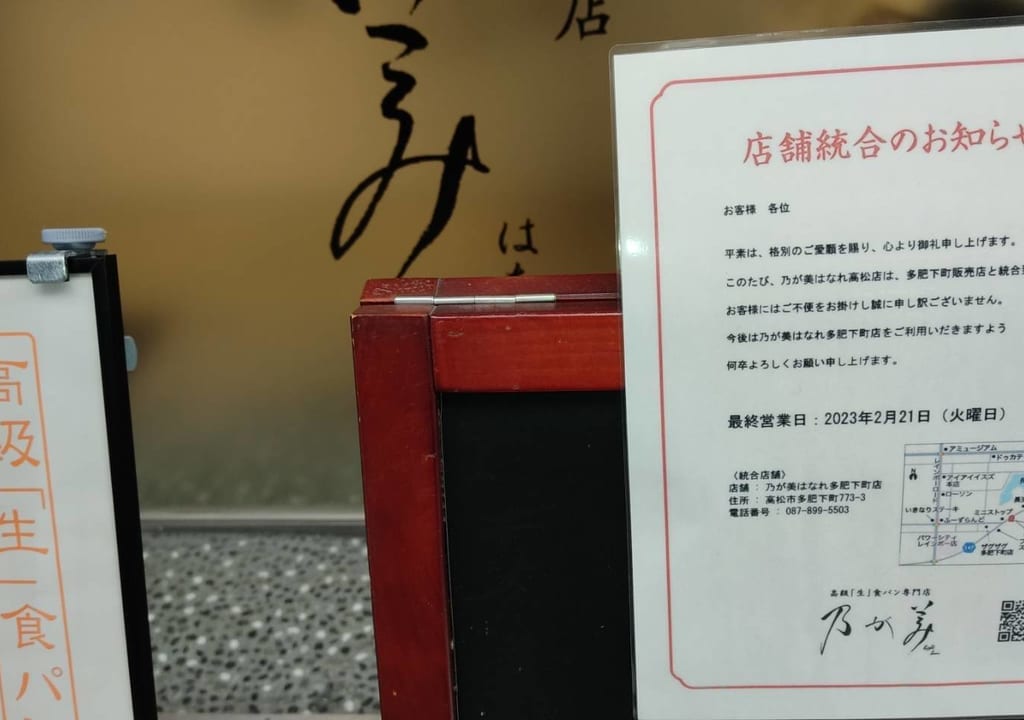 店
み
は
高級「生」食パ
店舗統合のお知らせ
お客様 各位
平素は、格別のご愛顧を賜り、心より御礼申し上げます。
このたび、乃が美はなれ高松店は、多肥下町販売店と統合
お客様にはご不便をお掛けし誠に申し訳ございません。
今後は乃が美はなれ多肥下町店をご利用いだきますよう
何卒よろしくお願い申し上げます。
最終営業日：2023年2月21日（火曜日）
（統合店舗）
店舗：乃が美はなれ多肥下町店
住所：高松市多肥下町773-3
電話番号：087-899-5503
アミュージアム
ドゥカテ
レインボーロード
N
アイアイイスズ
本店
ローソン
いきなりステーキ
ミニストップ
ふーずらんど
パワーシティ
レインボー店
ザグザグ
多肥下町店
高級「生」食パン専門店
乃が美